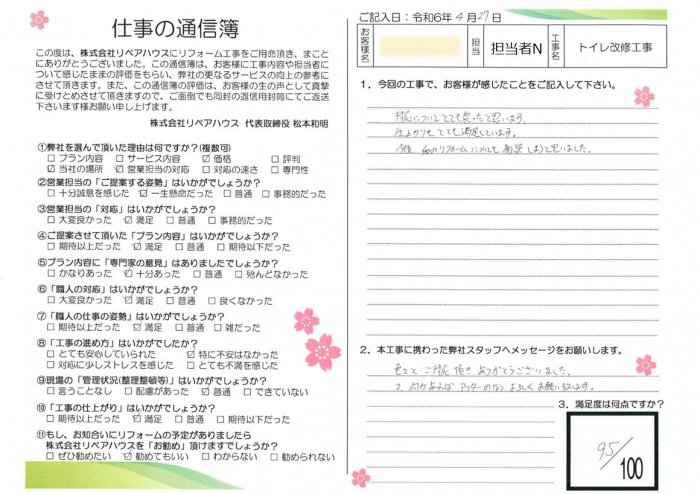 仕事の通信簿
この度は、株式会社リペアハウスにリフォーム工事をご用命頂き、まこと
にありがとうございました。この通信簿は、お客様に工事内容や担当者に
ついて感じたままの評価をもらい、弊社の更なるサービスの向上の参考に
させて頂きます。また、この通信簿の評価は、お客様の生の声として真摯
に受けとめさせて頂きますので、ご面倒でも同封の返信用封筒にてご返送
下さいます様お願い申し上げます。
株式会社リペアハウス 代表取締役 松本和明
①弊社を選んで頂いた理由は何ですか？(複数可)
□ プラン内容 □ サービス内容 ☑ 価格 □ 評判
☑ 当社の場所 ☑ 営業担当の対応 □ 対応の速さ □ 専門性
②営業担当の「ご提案する姿勢」はいかがでしょうか？
□ 十分誠意を感じた ☑ 一生懸命だった □ 普通 □ 事務的だった
③営業担当の「対応」はいかがでしょうか？
□ 大変良かった ☑ 満足 □ 普通 □ 事務的だった
④ご提案させて頂いた「プラン内容」はいかがでしょうか？
□ 期待以上だった ☑ 満足 □ 普通 □ 期待以下だった
⑤プラン内容に「専門家の意見」はありましたでしょうか？
□ かなりあった ☑ 十分あった □ 普通 □ 殆んどなかった
⑥「職人の対応」はいかがでしたか？
□ 大変良かった ☑ 満足 □ 普通 □ 良くなかった
⑦「職人の仕事の姿勢」はいかがでしょうか？
□ 期待以上だった ☑ 満足した □ 普通 □ 雑だった
⑧「工事の進め方」はいかがでしたか？
□ とても安心していられた ☑ 特に不安はなかった
□ 対応に少しストレスを感じた □ とても不満を感じた
⑨現場の「管理状況(整理整頓等)」はいかがでしょうか？
□ 言うことなし □ 配慮があった ☑ 普通 □ できていない
⑩「工事の仕上がり」はいかがでしょうか？
□ 期待以上だった ☑ 満足 □ 普通 □ 期待以下だった
⑪もし、お知合いにリフォームの予定がありましたら
株式会社リペアハウスを「お勧め」頂けますでしょうか？
□ ぜひ勧めたい ☑ 勧めてもいい □ わからない □ 勧められない
ご記入日：令和6年 4月 27日
お客様名
担当
担当者N
工事名
トイレ改修工事
1．今回の工事で、お客様が感じたことをご記入して下さい。
対応についてとても良かったと思います。
仕上がりもとても満足しています。
今後 他のリフォームについても 相談しようと思いました。
2．本工事に携わった弊社スタッフへメッセージをお願いします。
ご対応 頂き ありがとうございました。
よろしくお願い致します。
3．満足度は何点ですか？
95/100